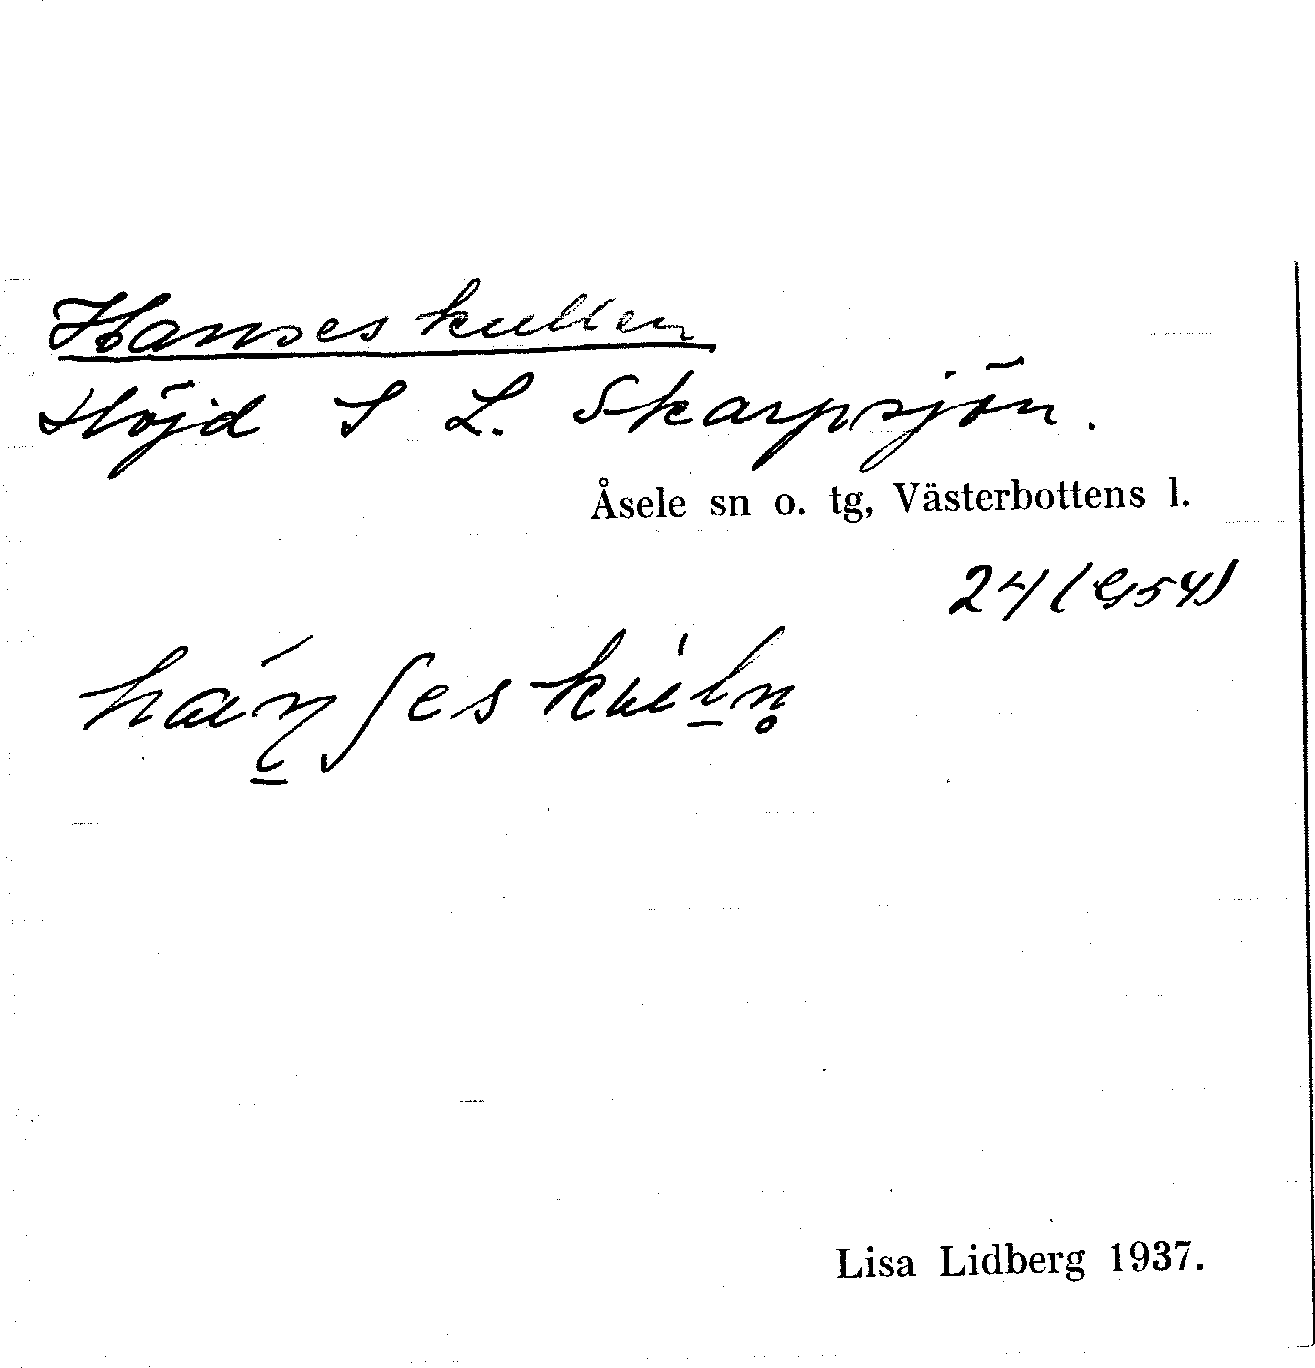 Hanseskullen
Höjd S L. Skarpsjön.
Åsele sn o. tg, Västerbottens l.
24 (G54)
Lisa Lidberg 1937.